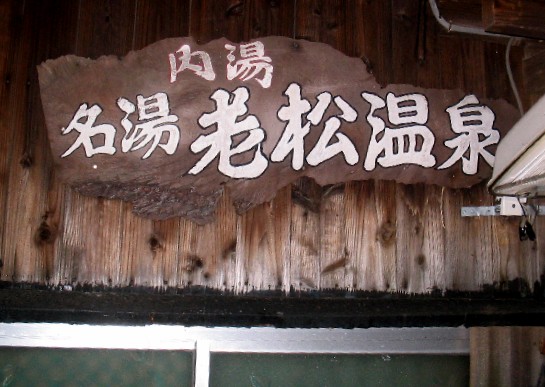 内湯
名湯 老松温泉